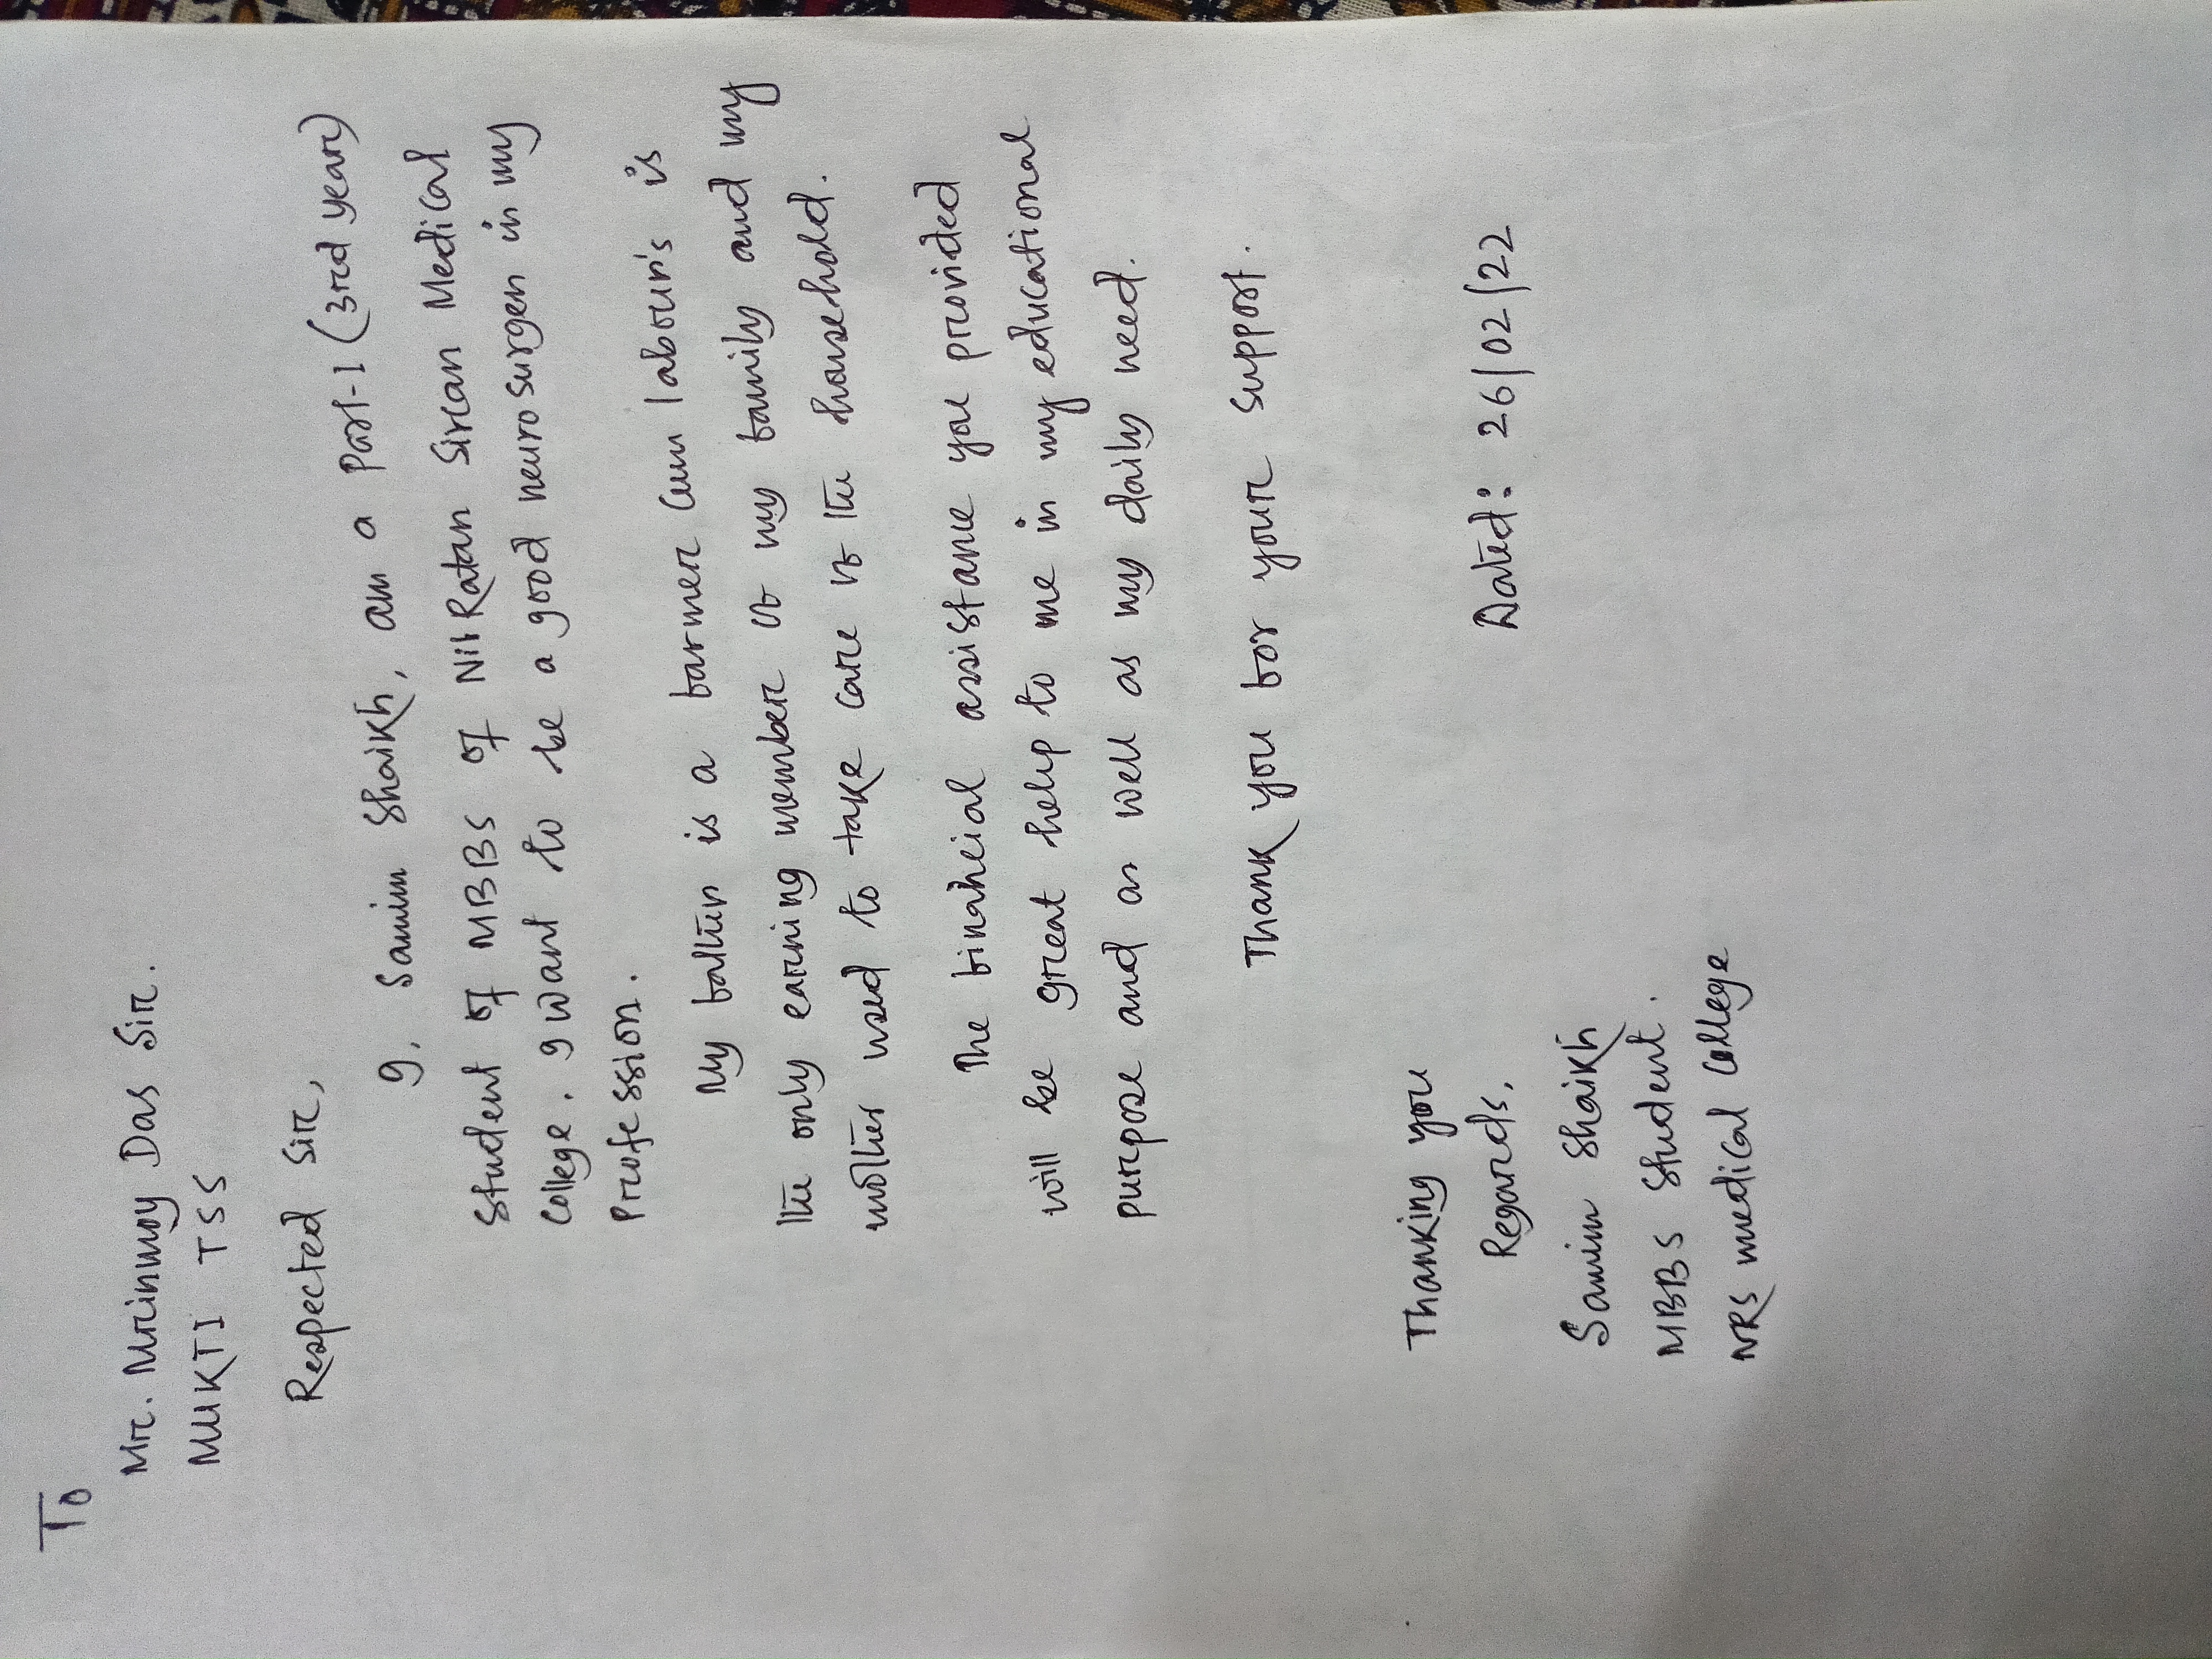 To
Mr. Mrinmoy Das Sir.
MUKTI TSS
Respected Sir,
I, Samim Shaikh, am a Part-I (3rd year)
Student of MBBS of Nil Ratan Sircar Medical
College. I want to be a good neurosurgen in my
Profession.
My father is a farmer cum labour's is
the only earning member of my family and my
mother used to take care of the household.
The finahcial assistance you provided
will be great help to me in my educational
purpose and as well as my daily need.
Thank you for your support.
Thanking you
Regards,
Dated: 26/02/22
Samim Shaikh
MBBS Student.
NRS medical College